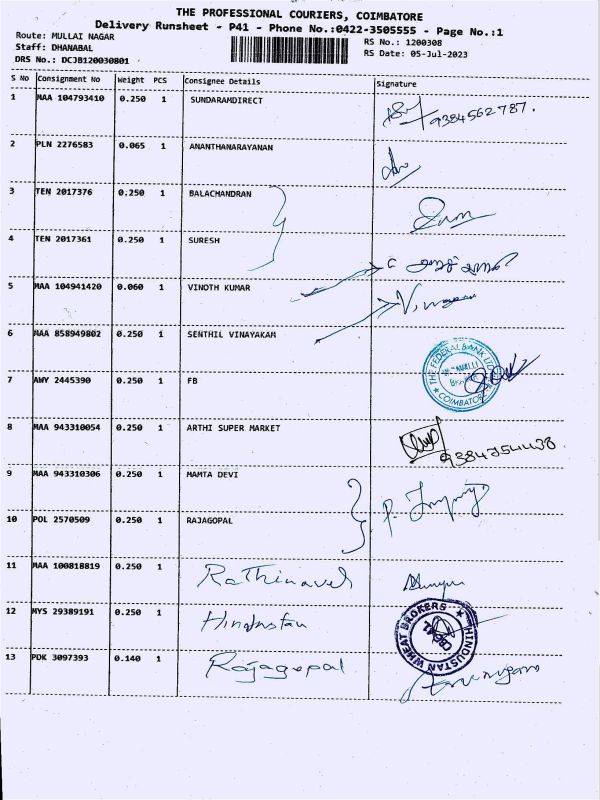 THE PROFESSIONAL COURIERS, COIMBATORE
Delivery Runsheet - P41 - Phone No.:0422-3505555 - Page No.:1
Route: MULLAI NAGAR
RS No.: 1200308
Staff: DHANABAL
RS Date: 05-Jul-2023
DRS No.: DCJB120030801
S No Consignment No Weight PCS Consignee Details Signature
1 MAA 104793410 0.250 1 SUNDARAMDIRECT 9384562787.
2 PLN 2276583 0.065 1 ANANTHANARAYANAN
3 TEN 2017376 0.250 1 BALACHANDRAN
4 TEN 2017361 0.250 1 SURESH
5 MAA 104941420 0.060 1 VINOTH KUMAR
6 MAA 858949802 0.250 1 SENTHIL VINAYAKAM
THE FEDERAL BANK LTD
COIMBATORE
7 AWY 2445390 0.250 1 FB
8 MAA 943310054 0.250 1 ARTHI SUPER MARKET
9 MAA 943310306 0.250 1 MAMTA DEVI
10 POL 2570509 0.250 1 RAJAGOPAL
11 MAA 100818819 0.250 1 Rathinavel
12 MYS 29389191 0.250 1 Hindustan
HINDUSTAN WHEAT BROKERS
13 PDK 3097393 0.140 1 Rajagopal